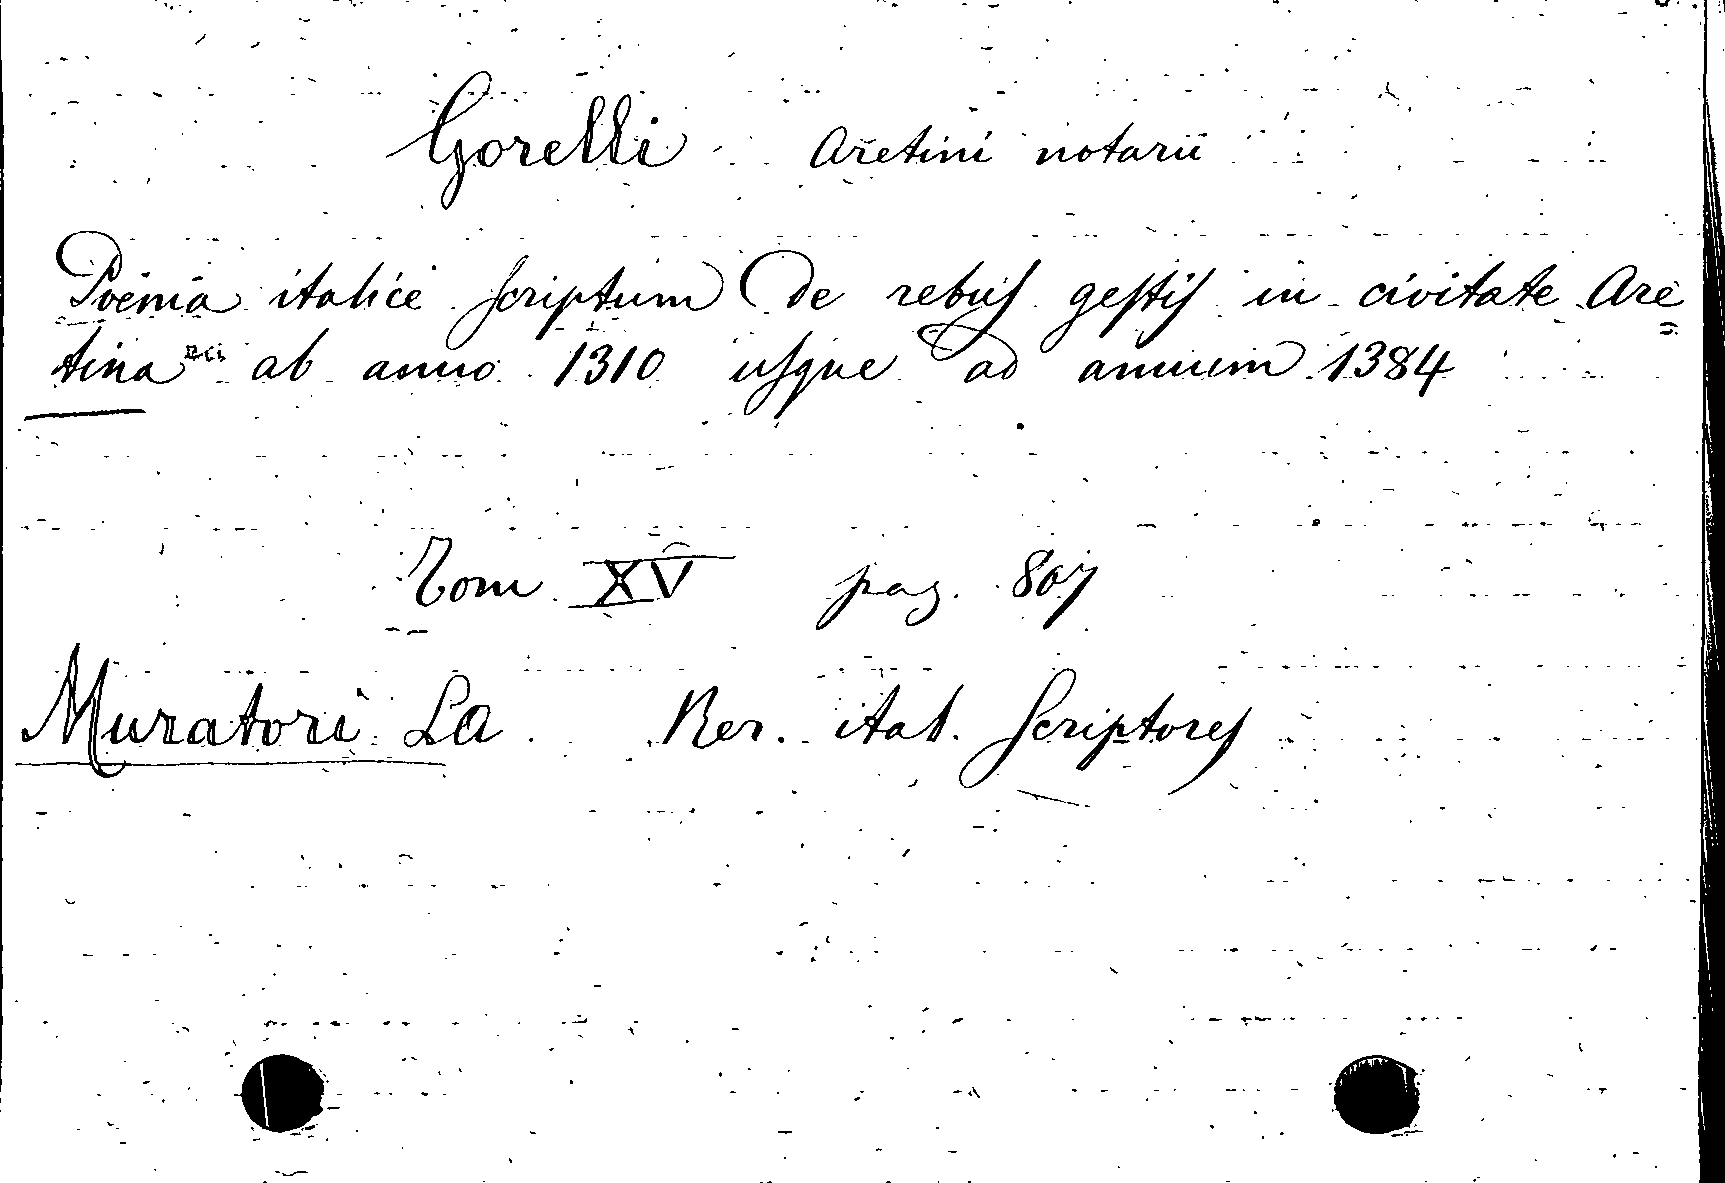 Gorelli Aretini notarii
Poema italice scriptum De rebus gestis in civitate Are
tina ab anno 1310 usque ad annum 1384
Tom XV pag. 807
Muratori La Rer. ital. Scriptores